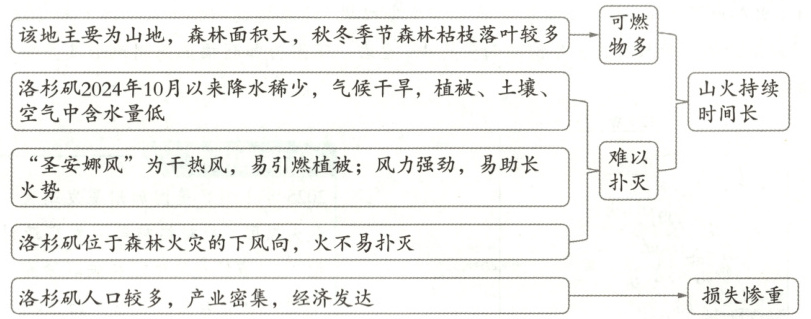 该地主要为山地，森林面积大，秋冬季节森林枯枝落叶较多
可燃
物多
洛杉矶2024年10月以来降水稀少，气候干旱，植被、土壤、
空气中含水量低
山火持续
时间长
“圣安娜风”为干热风，易引燃植被；风力强劲，易助长
火势
难以
扑灭
洛杉矶位于森林火灾的下风向，火不易扑灭
洛杉矶人口较多，产业密集，经济发达
损失惨重